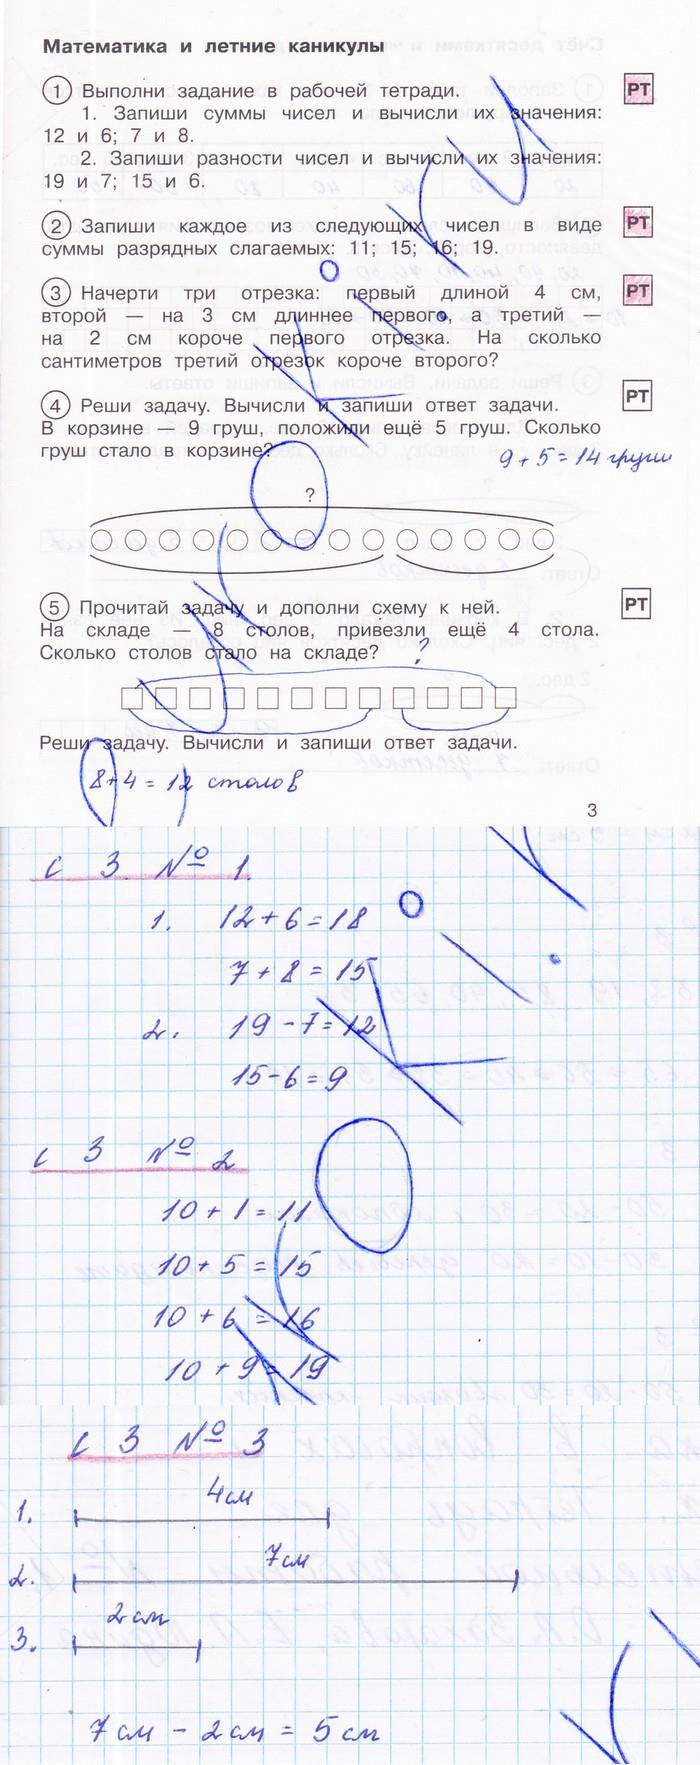 Математика и летние каникулы
1 Выполни задание в рабочей тетради. РТ
1. Запиши суммы чисел и вычисли их значения:
12 и 6; 7 и 8.
2. Запиши разности чисел и вычисли их значения:
19 и 7; 15 и 6.
2 Запиши каждое из следующих чисел в виде РТ
суммы разрядных слагаемых: 11; 15; 16; 19.
3 Начерти три отрезка: первый длиной 4 см, РТ
второй — на 3 см длиннее первого, а третий —
на 2 см короче первого отрезка. На сколько
сантиметров третий отрезок короче второго?
4 Реши задачу. Вычисли и запиши ответ задачи. РТ
В корзине — 9 груш, положили ещё 5 груш. Сколько
груш стало в корзине?
9 + 5 = 14 груши
?
5 Прочитай задачу и дополни схему к ней. РТ
На складе — 8 столов, привезли ещё 4 стола.
Сколько столов стало на складе?
?
Реши задачу. Вычисли и запиши ответ задачи.
8+4 = 12 столов
3
с 3. № 1.
1. 12 + 6 = 18
7 + 8 = 15
2. 19 - 7 = 12
15 - 6 = 9
с 3 № 2
10 + 1 = 11
10 + 5 = 15
10 + 6 = 16
10 + 9 = 19
с 3 № 3
4 см
1.
7 см
2.
2 см
3.
7 см - 2 см = 5 см